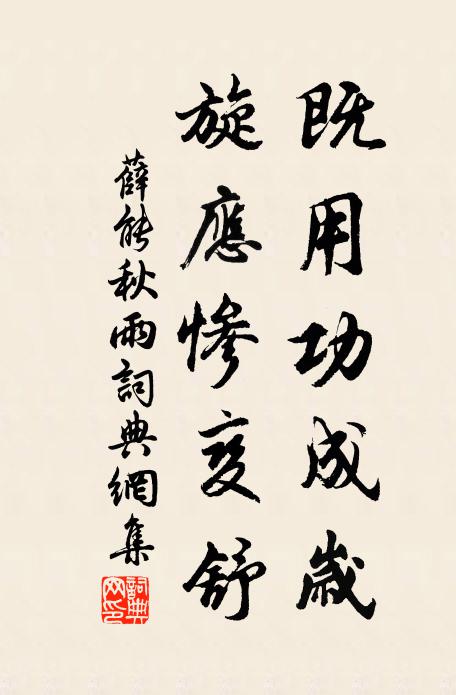 既用功成歲
旋應慘變舒
薛能秋雨詞典網集
詞典網印